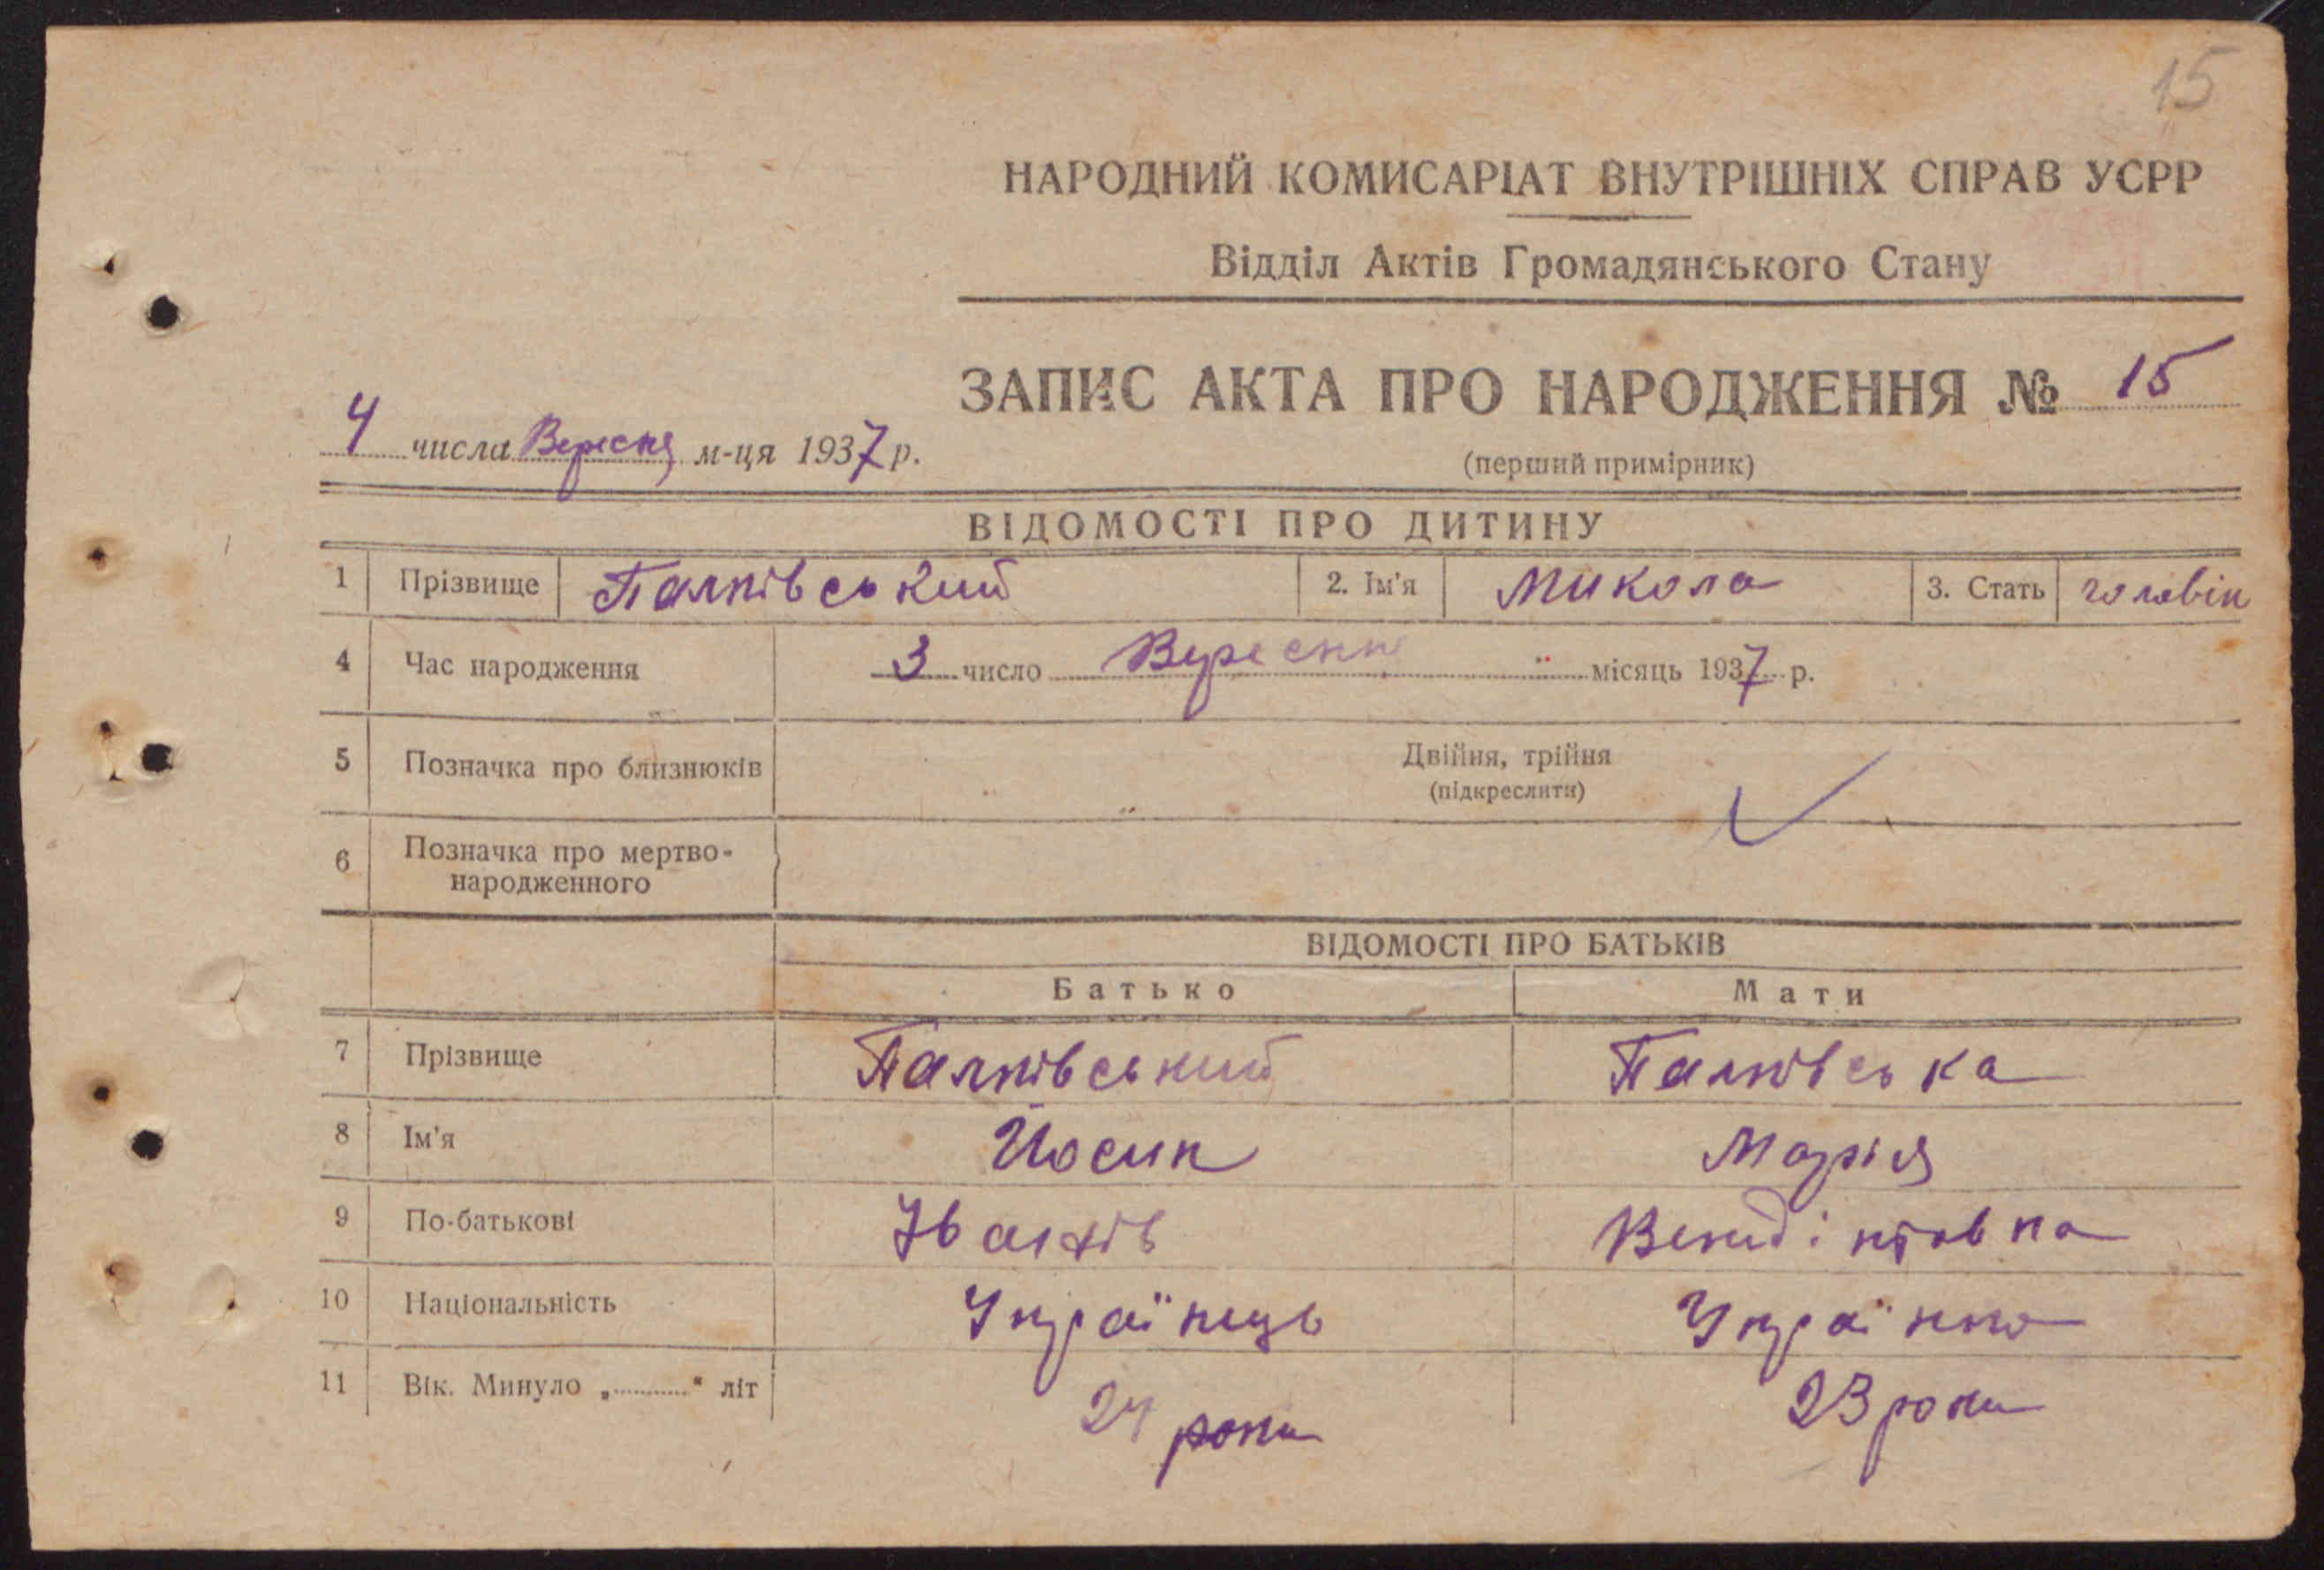 15
НАРОДНИЙ КОМИСАРІАТ ВНУТРІШНІХ СПРАВ УСРР
Відділ Актів Громадянського Стану
ЗАПИС АКТА ПРО НАРОДЖЕННЯ № 15
4 числа Вересня м-ця 1937 р.
(перший примірник)
ВІДОМОСТІ ПРО ДИТИНУ
1 Прізвище Палківський 2. Ім'я Микола 3. Стать чоловік
4 Час народження 3 число Вересня місяць 1937 р.
5 Позначка про близнюків Двійня, трійня
(підкреслити)
6 Позначка про мертво-
народженного
ВІДОМОСТІ ПРО БАТЬКІВ
Батько Мати
7 Прізвище Палківський Палківська
8 Ім'я Йосип Марія
9 По-батькові Іванів
10 Національність Українець Українка
11 Вік. Минуло „............" літ 24 роки 23 роки